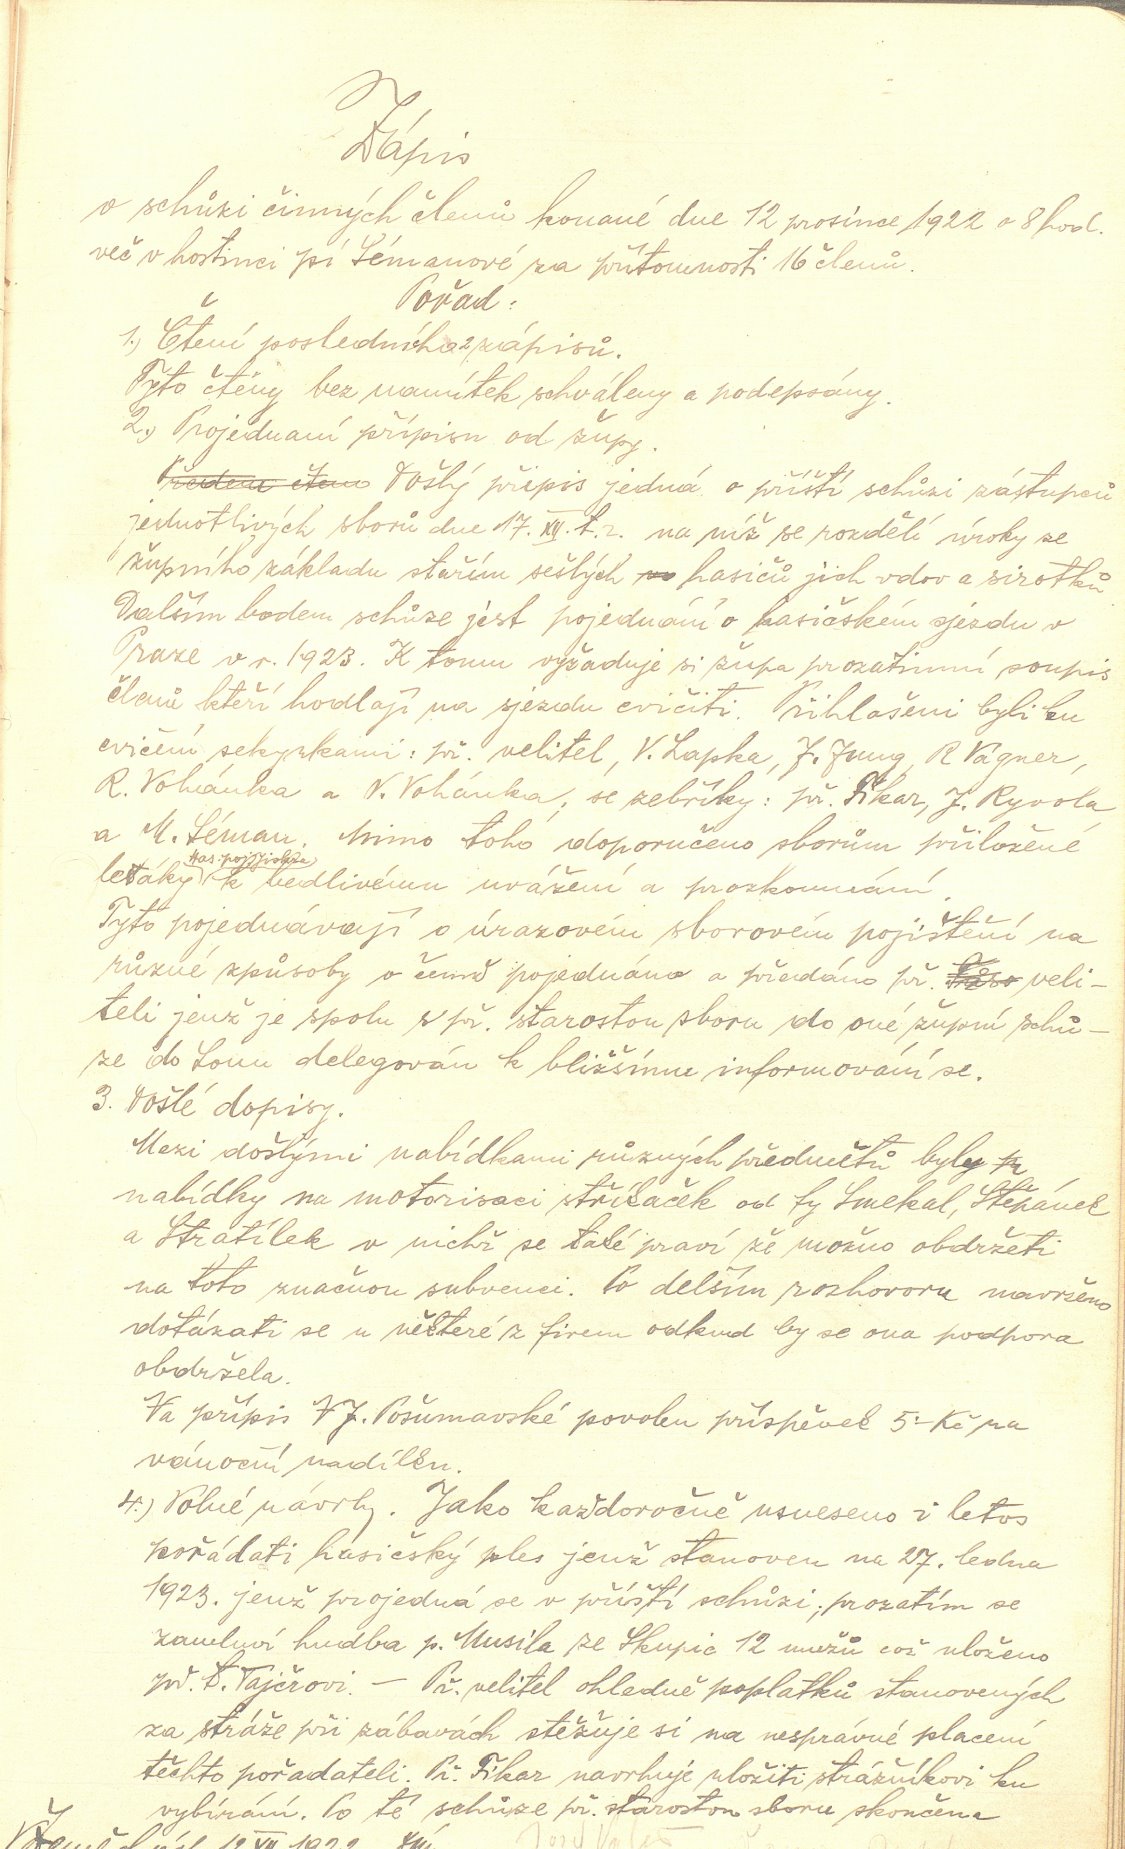 Zápis
o schůzi činných členů konané dne 12 prosince 1922 o 8 hod.
več v hostinci pí Sémanové za přítomnosti 16 členů.
Pořad:
1.) Čtení posledního 2 zápisů.
Tyto čtény bez namítek schváleny a podepsány.
2.) Projednaní přípisu od župy.
Došlý připis jedná o příští schůzi zástupců
jednotlivých sborů dne 17. XII. t.r. na níž se rozdělí úroky ze
župního základu stařím sešlých hasičů jich vdov a sirotků
Dalším bodem schůze jest pojednání o hasičském sjezdu v
Praze v r. 1923. K tomu vyžaduje si župa prozatimní soupis
členů kteří hodlají na sjezdu cvičiti. Přihlašeni byli ku
cvičení sekyrkami: př. velitel, V. Lapka, J. Jung, R Vágner,
R. Vohánka a V. Vohánka, se žebříky: př. Fikar, J. Ryvola
a M. Séman. Mimo toho doporučeno sborům přiložené
letáky has. pojišťovny k bedlivému uvážení a prozkoumání.
Tyto pojednávají o úrazovém sborovém pojištění na
různé způsoby o čemž pojednáno a předáno př. veli-
teli jenž je spolu s př. starostou sboru do oné župní schů-
ze do Lomu delegován k bližšímu informování se.
3. Došlé dopisy.
Mezi došlými nabídkami různých předmětů byly
nabídky na motorisaci stříkaček od fy Smekal, Štěpánek
a Stratílek v nichž se také praví že možno obdržeti
na toto značnou subvenci. Po delším rozhovoru navrženo
dotázati se u některé z firem odkud by se ona podpora
obdržela.
Na přípis N J. Pošumavské povolen příspěvek 5·- Kč na
vánoční nadílku.
4.) Volné návrhy. Jako každoročně usneseno i letos
pořádati hasičský ples jenž stanoven na 27. ledna
1923. jenž projedná se v příští schůzi; prozatím se
zamluví hudba p. Musila ze Skupic 12 mužů což uloženo
př. t. Tajčrovi. — Př. velitel ohledně poplatků stanovených
za stráže při zábavách stěžuje si na nesprávné placení
těchto pořadateli. Př. Fikar navrhuje uložiti strážníkovi ku
vybírání. Po té schůze př. starostou sboru skončena